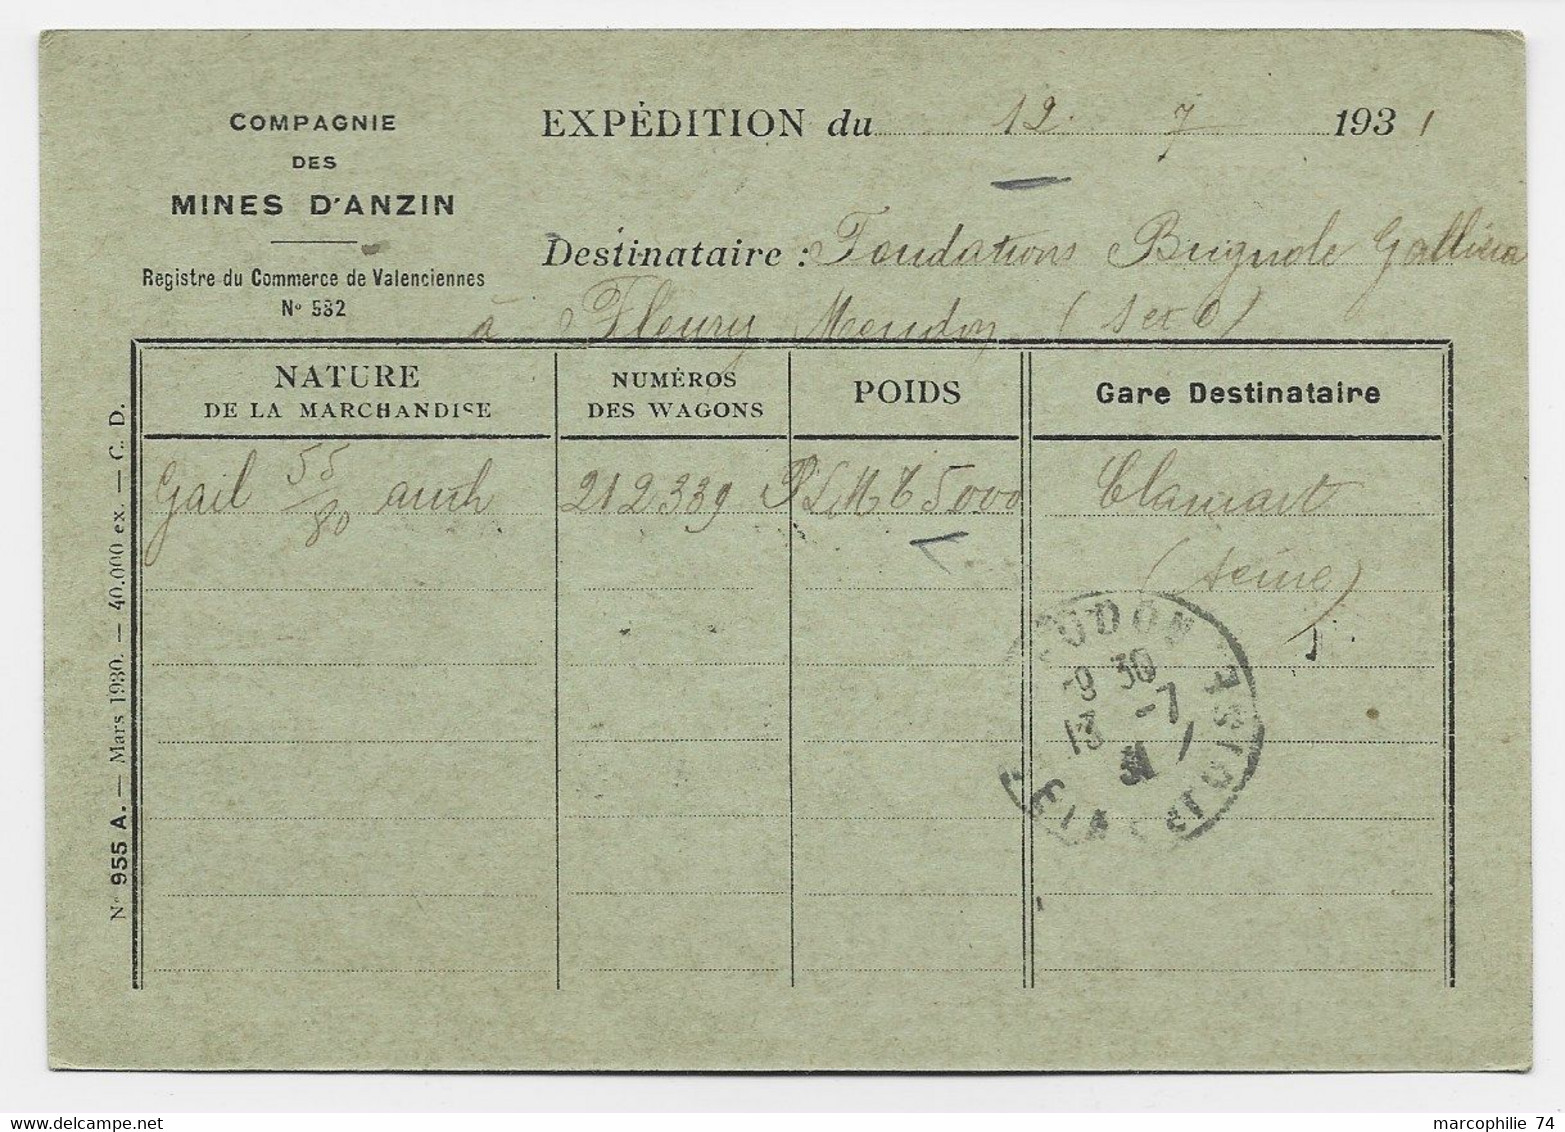 COMPAGNIE
DES
MINES D'ANZIN
Registre du Commerce de Valenciennes
N° 532
EXPÉDITION du 12. 7 1931
Destinataire : Fondations Brignole Galliera
à Fleury Meudon (S et O)
NATURE
DE LA MARCHANDISE
NUMÉROS
DES WAGONS
POIDS
Gare Destinataire
Gail 55/80 212339 PLM 5000 Clamart
(Seine)
N° 955 A. — Mars 1930. — 40.000 ex. — C. D.
UDON
-9 30
13 -7
31
SEINE ET OISE
marcophilie 74